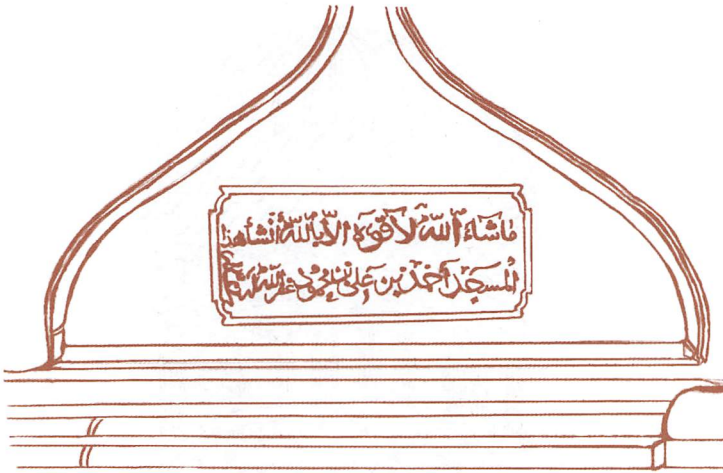 ماشاء الله لا قوة الا بالله أنشأ هذا
المسجد أحمد بن علي بن محمود غفر الله له